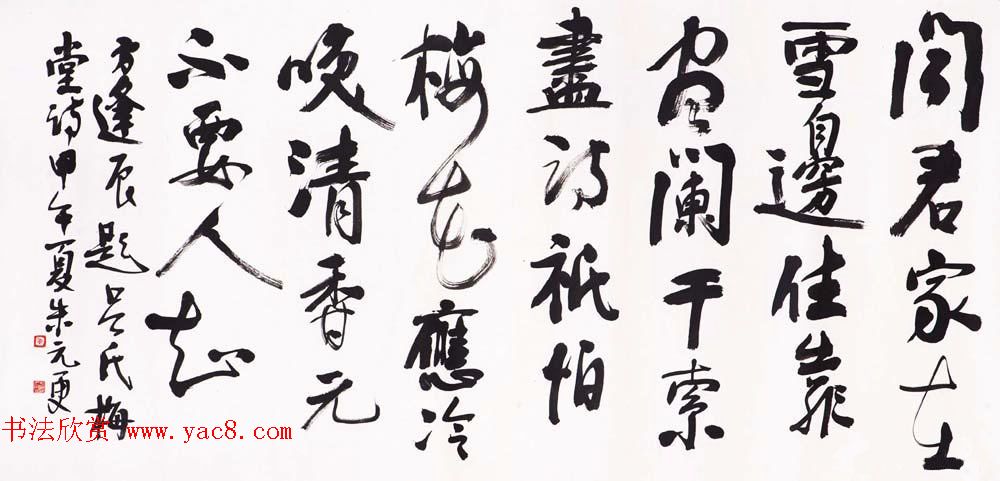 闻君家在
雪邊住靠
尽闌干索
盡诗祇怕
梅花應冷
咲清香元
不要人知
方逢辰题吴氏梅
堂诗甲午夏朱元更
书法欣赏 www.yac8.com